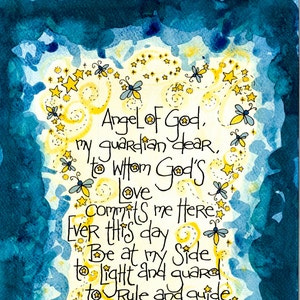 Angel of God,
my guardian dear,
to whom God's
Love
commits me Here.
Ever this day
Be at my Side
to Light and guard
to Rule and guide